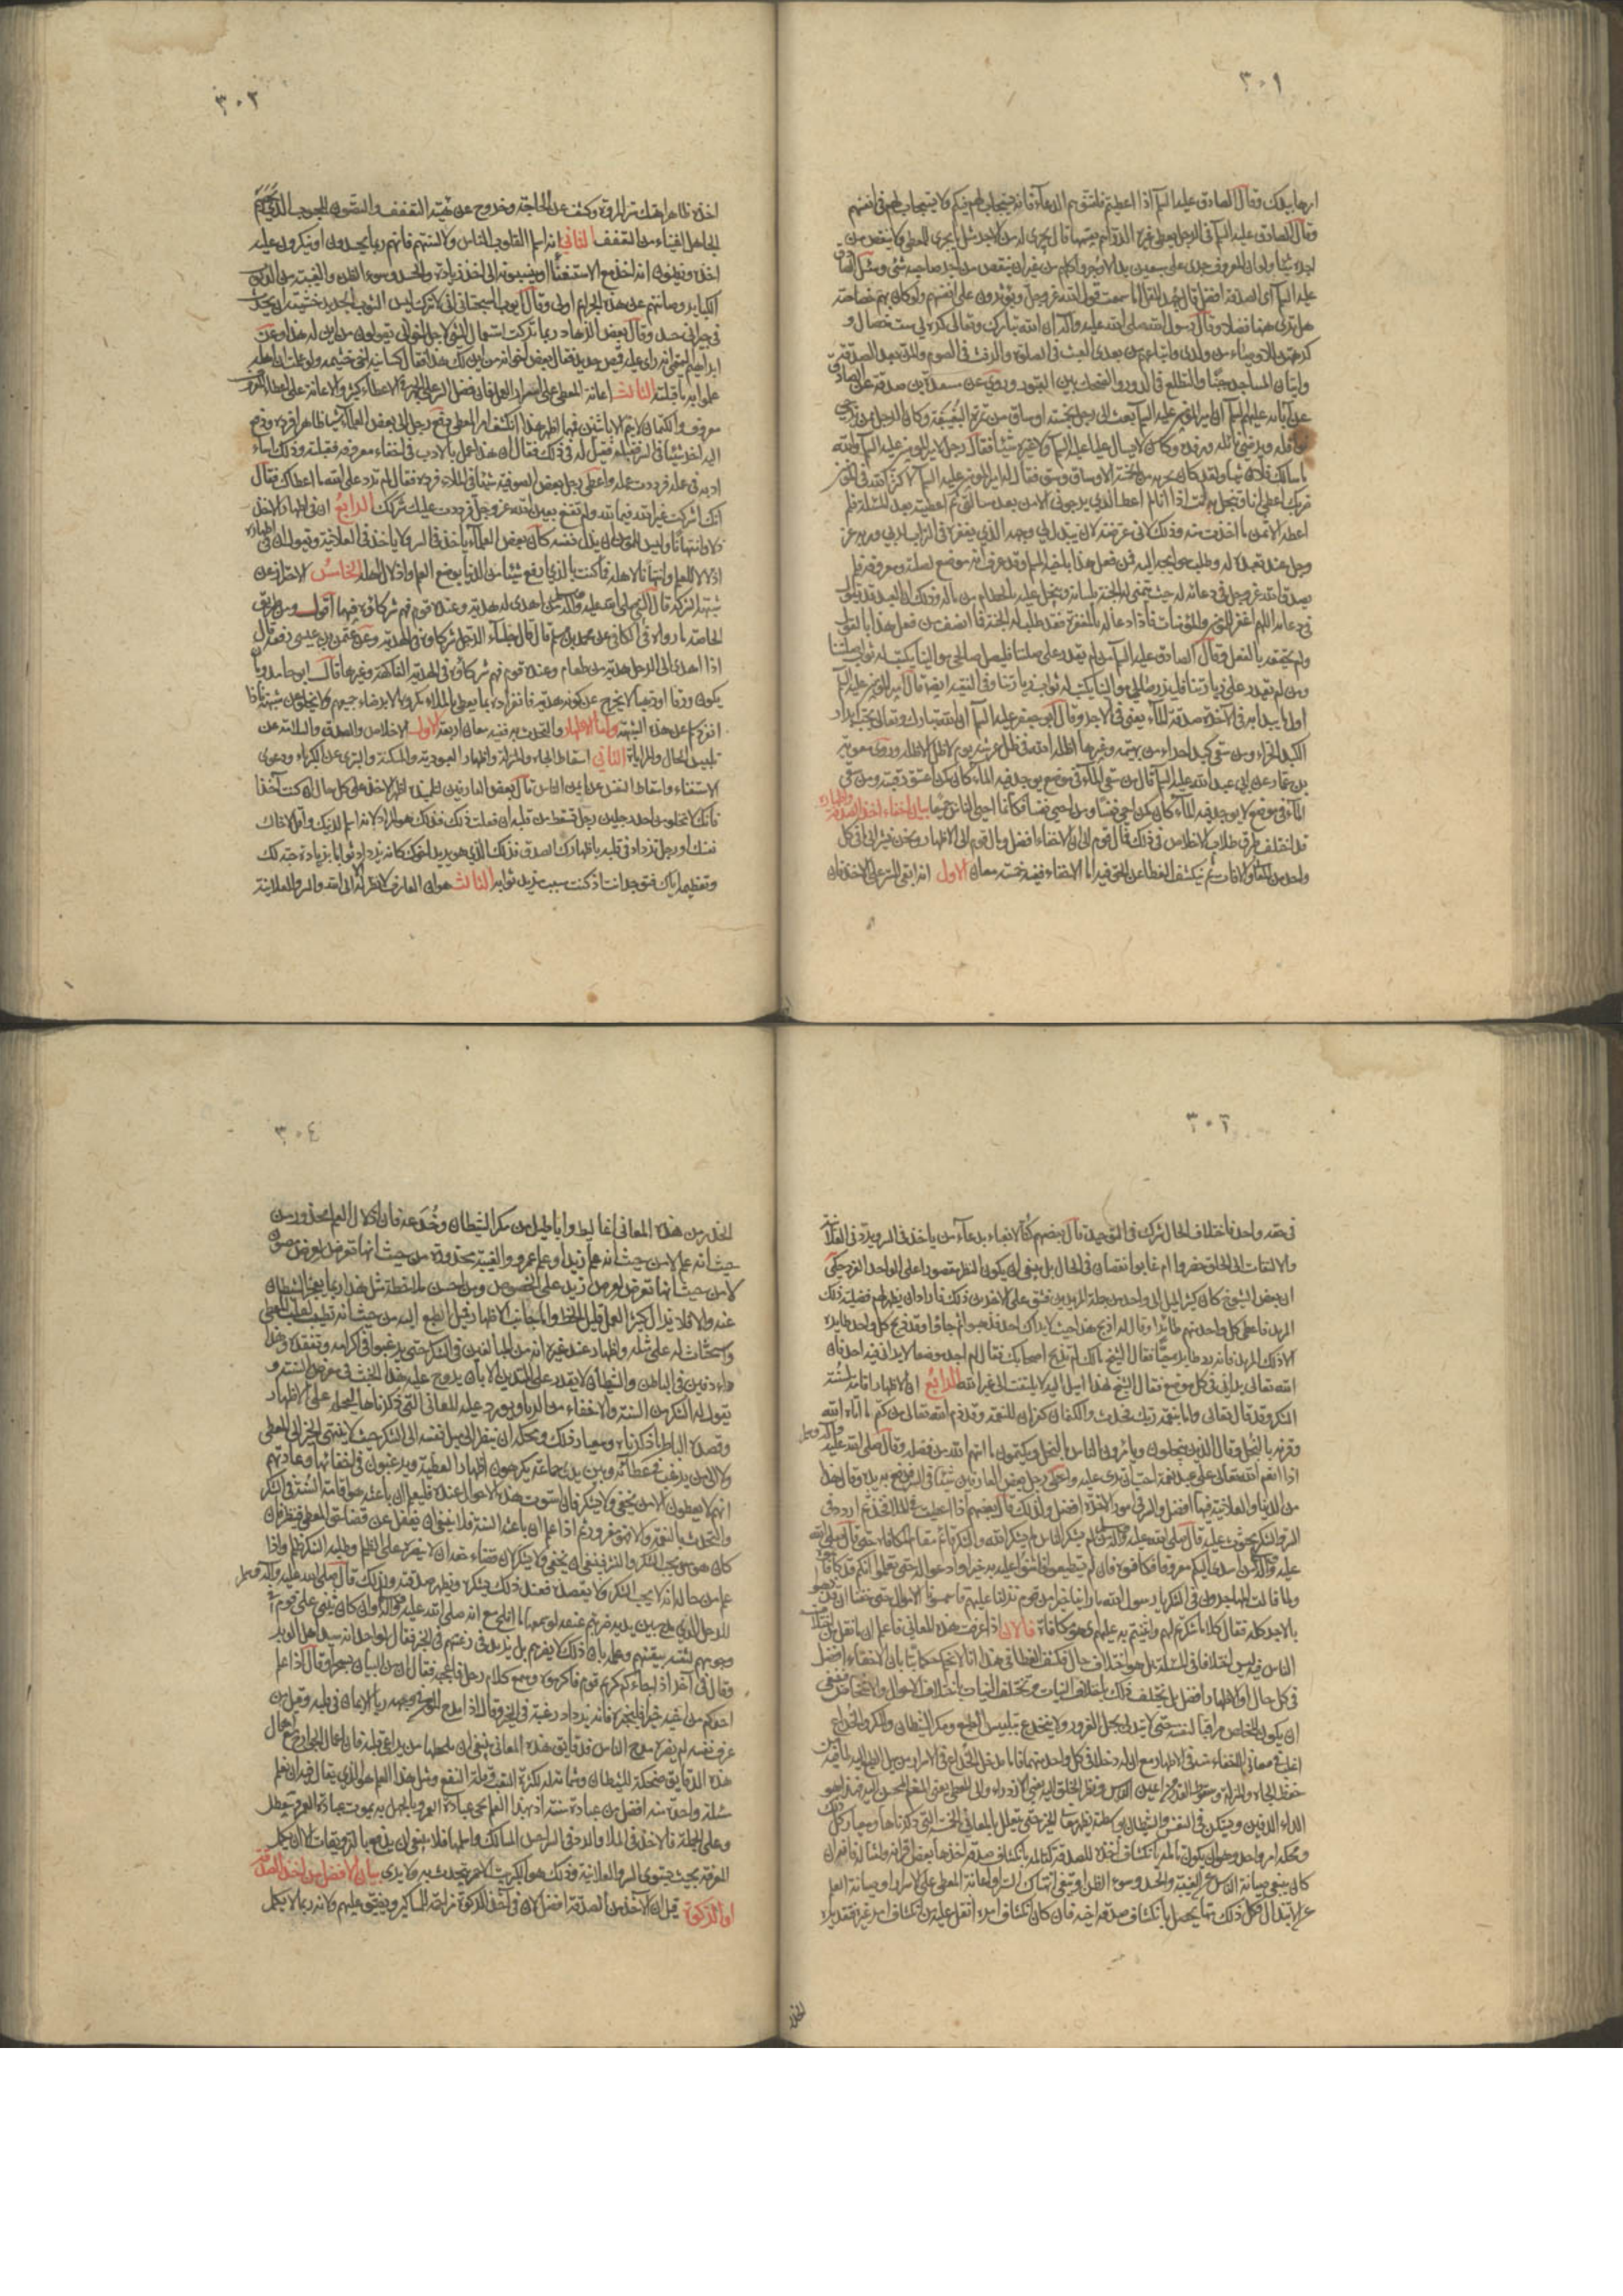 ٣٠١
وقال الصادق عليه السلم اذا اعطيتموهم فلقنوهم الدعاء فانه يستجاب لهم فيكم ولا يستجاب لهم في انفسهم
وقال الصادق عليه السلم في الرجل يعطي غيره الدراهم يقسمها قال يجري له من الاجر مثل ما يجري للمعطي ولا ينقص من
اجره شيئا ولو ان المعروف جرى على سبعين يدا لاوجروا كلهم من غير ان ينقص من اجر صاحبه شئ وسئل الصادق
عليه السلم اي الصدقة افضل قال جهد المقل اما سمعت قول الله عز وجل ويؤثرون على انفسهم ولو كان بهم خصاصة
هل ترى هنا فضلا وقال رسول الله صلى الله عليه وآله ان الله تبارك وتعالى كره لي ست خصال و
كرهتهن للاوصياء من ولدي واتباعهم من بعدي العبث في الصلوة والرفث في الصوم والمن بعد الصدقة
واتيان المساجد جنبا والتطلع في الدور والضحك بين القبور وروي عن مسعدة بن صدقة عن الصادق
عن آبائه عليهم السلم ان امير المؤمنين عليه السلم بعث الى رجل بخمسة اوساق من تمر البغيبغة وكان الرجل ممن يرجى
نوافله ويرضى نائله ورفده وكان لا يسال عليا عليه السلم ولا غيره شيئا فقال رجل لامير المؤمنين عليه السلم والله
ما سالك فلان شيئا ولقد كان يجزيه من الخمسة الاوساق وسق فقال له امير المؤمنين عليه السلم لا كثر الله في المؤمنين
ضربك اعطي انا وتبخل انت اذا انا لم اعط الذي يرجوني الا من بعد مسالتي ثم اعطيته بعد المسئلة فلم
اعطه الا ثمن ما اخذت منه وذلك لاني عرضته لان يبذل لي وجهه الذي يعفره في التراب لربي وربه عز
وجل عند تعبده له وطلب حوايجه اليه فمن فعل هذا باخيه المسلم وقد عرف انه موضع لصلته ومعروفه فلم
يصدق الله عز وجل في دعائه له حيث يتمنى له الجنة بلسانه ويبخل عليه بالحطام من ماله وذلك ان العبد قد يقول
في دعائه اللهم اغفر للمؤمنين والمؤمنات فاذا دعا له بالمغفرة فقد طلب له الجنة فما انصف من فعل هذا بالقول
ولم يحققه بالفعل وقال الصادق عليه السلم من لم يقدر على صلتنا فليصل صالحي موالينا يكتب له ثواب صلتنا
ومن لم يقدر على زيارتنا فليزر صالحي موالينا يكتب له ثواب زيارتنا وفي الفقيه ايضا قال امير المؤمنين عليه السلم
اول ما يبدا به في الآخرة صدقة الماء يعني في الاجر وقال ابو جعفر عليه السلم ان الله تبارك وتعالى يحب ابراد
الكبد الحراء ومن سقى كبدا حراء من بهيمة وغيرها اظله الله في ظل عرشه يوم لا ظل الا ظله وروى معوية
بن عمار عن ابي عبد الله عليه السلم قال من سقى الماء في موضع يوجد فيه الماء كان كمن اعتق رقبة ومن سقى
الماء في موضع لا يوجد فيه الماء كان كمن احيى نفسا ومن احيى نفسا فكانما احيى الناس جميعا بيان اخفاء اخذ الصدقة واظهاره
قد اختلف طرق طلاب الاخلاص في ذلك فمال قوم الى ان الاخفاء افضل ومال قوم الى الاظهار ونحن نشير الى ما في كل
واحد من المعاني والآفات ثم نكشف الغطاء عن الحق فيه اما الاخفاء ففيه خمسة معان الاول انه ابقى للستر على الآخذ فان
٣٠٢
اخذه ظاهرا هتك ستر المروة وكشف عن الحاجة وخروج عن هيئة التعفف والتصون المحبوب الذي يحسبهم
الجاهل اغنياء من التعفف الثاني انه اسلم لقلوب الناس والسنتهم فانهم ربما يحسدون او ينكرون عليه
اخذه ويظنون انه اخذ مع الاستغناء او ينسبونه الى اخذ زيادة والحسد وسوء الظن والغيبة من الذنوب
الكباير وصيانتهم عن هذه الجرائم اولى وقال ايوب السجستاني اني لاترك لبس الثوب الجديد خشية ان يحدث
في جيراني حسد وقال بعض الزهاد ربما تركت استعمال الشئ لاجل اخواني يقولون من اين له هذا وعن
ابراهيم التيمي انه راى عليه قميص جديد فقال بعض اخوانه من اين لك هذا فقال كسانيه اخي خيثمة ولو علمت ان اهله
علموا به ما قبلته الثالث اعانة المعطي على اسرار العمل فان فضل السر على الجهر في الاعطاء كثير والاعانة على اتمام المعروف
معروف والكتمان لا يتم الا باثنين فمهما اظهر هذا انكشف امر المعطي دفع رجل الى بعض العلماء شيئا ظاهرا فرده ودفع
اليه آخر شيئا في السر فقبله فقيل له في ذلك فقال ان هذا عمل بالادب في اخفاء معروفه فقبلته وذلك اساء
ادبه في عمله فرددت عمله واعطى رجل بعض الصوفية شيئا في الملاء فرده فقال لم ترد على الله ما اعطاك فقال
انك اشركت غير الله فيما لله ولم تقنع بعين الله عز وجل فرددت عليك شركك الرابع ان في اظهار الاخذ
ذلا وامتهانا وليس للمؤمن ان يذل نفسه كان بعض العلماء ياخذ في السر ولا ياخذ في العلانية ويقول ان في اظهاره
اذلالا للعلم وامتهانا لاهله فما كنت بالذي ارفع شيئا من الدنيا بوضع العلم واذلال اهله الخامس الاحتراز عن
شبهة الشركة قال النبي صلى الله عليه وآله من اهدي له هدية وعنده قوم فهم شركاؤه فيها اقول ومن طريق
الخاصة ما رواه في الكافي عن محمد بن مسلم قال قال جلساء الرجل شركاؤه في الهدية وعن عثمن بن عيسى رفعه قال
اذا اهدي الى الرجل هدية من طعام وعنده قوم فهم شركاؤه في الهدية الفاكهة وغيرها قال ابو حامد وبان
يكون ورقا او ذهبا لا يخرج عن كونه هدية فانفراده بما يعطى في الملاء مكروه الا برضاء جميعهم ولا يخلو عن شبهة فاذا
انفرد سلم عن هذه الشبهة واما الاظهار والتحدث به ففيه معان اربعة الاول الاخلاص والصدق والسلامة عن
تلبيس الحال والمراياة الثاني اسقاط الجاه والمنزلة واظهار العبودية والمسكنة والتبري عن الكبرياء ودعوى
الاستغناء واسقاط النفس عن اعين الناس قال بعض العارفين لتلميذه اظهر الاخذ على كل حال ان كنت آخذا
فانك لا تخلو من احد رجلين رجل تسقط من قلبه ان فعلت ذلك فذلك هو المراد لانه اسلم لدينك واقل لآفات
نفسك او رجل تزداد في قلبه باظهارك الصدق فذلك الذي يريده اخوك لانه يزداد ثوابا بزيادة حبه لك
وتعظيمه اياك فتؤجر انت اذ كنت سبب مزيد ثوابه الثالث هو ان العارف لا نظر له الا الى الله والسر والعلانية
٣٠٣
في حقه واحد فاختلاف الحال شرك في التوحيد قال بعضهم كنا لا نعباء بدعاء من ياخذ في السر ويرد في العلانية
والالتفات الى الخلق حضروا ام غابوا نقصان في الحال بل ينبغي ان يكون النظر مقصورا على الواحد الفرد حكي
ان بعض الشيوخ كان كثير الميل الى واحد من جملة المريدين فشق على الآخرين ذلك فاراد ان يظهر لهم فضيلة ذلك
المريد فاعطى كل واحد منهم طائرا وقال له اذبح هذا حيث لا يراك احد فذهبوا ثم جاؤا وقد ذبح كل واحد طايره
الا ذلك المريد فانه رد طايره حيا فقال الشيخ مالك لم تذبح كاصحابك فقال لم اجد موضعا لا يراني فيه احد فان
الله تعالى يراني في كل موضع فقال الشيخ لهذا اميل اليه لا يلتفت الى غير الله الرابع ان الاظهار اقامة لسنة
الشكر وقد قال تعالى واما بنعمة ربك فحدث والكتمان كفران للنعمة وقد ذم الله تعالى من كتم ما آتاه الله
وقرنه بالبخل وقال الذين يبخلون ويامرون الناس بالبخل ويكتمون ما آتاهم الله من فضله وقال صلى الله عليه وآله وسلم
اذا انعم الله تعالى على عبد نعمة احب ان ترى عليه واعطى رجل بعض العارفين شيئا في السر فرفع به يده وقال هذا
من الدنيا والعلانية فيها افضل والسر في امور الآخرة افضل ولذلك قال بعضهم اذا اعطيت في الملاء فخذ ثم اردد في
السر والشكر محثوث عليه قال صلى الله عليه وآله من لم يشكر الناس لم يشكر الله والشكر قائم مقام المكافاة حتى قال صلى الله
عليه وآله من اسدى اليكم معروفا فكافوه فان لم تستطيعوا فاثنوا عليه به خيرا وادعوا له حتى تعلموا انكم قد كافاتموه
ولما قالت المهاجرون في الشكر يا رسول الله ما راينا خيرا من قوم نزلنا عليهم قاسمونا الاموال حتى خفنا ان يذهبوا
بالاجر كله فقال كلا ما شكرتم لهم واثنيتم به عليهم اي هو مكافاة فالآن اذا عرفت هذه المعاني فاعلم ان ما نقل من اختلاف
الناس فيه ليس اختلافا في المسئلة بل هو اختلاف حال فكشف الغطاء في هذا انا لا نحكم حكما بتا بان الاخفاء افضل
في كل حال او الاظهار افضل بل يختلف ذلك باختلاف النيات وتختلف النيات باختلاف الاحوال والاشخاص فينبغي
ان يكون المخلص مراقبا لنفسه حتى لا يتدلى بحبل الغرور ولا ينخدع بتلبيس الطبع ومكر الشيطان والمكر والخداع
اغلب في معاني الاخفاء منه في الاظهار مع ان له دخلا في كل واحد منهما فاما مدخل الخداع في الاسرار من ميل الطبع اليه لما فيه من
خفظ الجاه والمنزلة وسقوط القدر عن اعين الناس ونظر الخلق اليه بعين الازدراء والى المعطي بعين المنعم المحسن اليه فهذا هو
الداء الدفين ويستكن في النفس والشيطان بواسطته يظهر معاني الخير حتى يتعلل بالمعاني الخمسة التي ذكرناها ومعيار كل ذلك
ومحكه امر واحد وهو ان يكون تالمه بانكشاف اخذه للصدقة كتالمه بانكشاف صدقة اخذها بعض اقرانه وامثاله فانه ان
كان يبغي صيانة الناس عن الغيبة والحسد وسوء الظن او يتقي انتهاك الستر او اعانة المعطي على الاسرار او صيانة العلم
عن الابتذال فكل ذلك مما يحصل بانكشاف صدقة اخيه فان كان انكشاف امره اثقل عليه من انكشاف امر غيره فتقديره
الحذر
٣٠٤
الحذر من هذه المعاني اغاليط واباطيل من مكر الشيطان وخدعه فان اذلال العلم محذور من
حيث انه علم لا من حيث انه علم زيد او علم عمرو والغيبة محذورة من حيث انها تعرض لعرض مصون
لا من حيث انها تعرض لعرض زيد على الخصوص ومن احسن ملاحظة مثل هذا ربما يعجز الشيطان
عنه والا فلا يزال كثير العمل قليل الحظ واما جانب الاظهار فميل الطبع اليه من حيث انه تطييب لقلب المعطي
واستحثاث له على مثله واظهار عند غيره انه من المبالغين في الشكر حتى يرغبوا في اكرامه وتفقده وهذا
داء دفين في الباطن والشيطان لا يقدر على المتدين الا بان يروج عليه هذا الخبث في معرض السنة و
يقول له الشكر من السنة والاخفاء من الرياء ويورد عليه المعاني التي ذكرناها ليحمله على الاظهار
وقصده الباطن ما ذكرناه ومعيار ذلك ومحكه ان ينظر الى ميل نفسه الى الشكر حيث لا ينتهي الخبر الى المعطي
ولا الى من يرغب في عطائه وبين يدي جماعة يكرهون اظهار العطية ويرغبون في اخفائها وعادتهم
انهم لا يعطون الا من يخفي ولا يشكر فان استوت هذه الاحوال عنده فليعلم ان باعثه هو اقامة السنة في الشكر
والتحدث بالنعمة والا فهو مغرور ثم اذا علم ان باعثه السنة فلا ينبغي ان يغفل عن قضاء حق المعطي فينظر فان
كان هو ممن يحب الشكر والنشر فينبغي ان يخفي ولا يشكر لان قضاء حقه ان لا ينصره على الظلم وطلبه الشكر ظلم واذا
علم من حاله انه لا يحب الشكر ولا يقصده فعند ذلك يشكره ويظهر صدقته ولذلك قال صلى الله عليه وآله وسلم
للرجل الذي مدح بين يديه ضربتم عنقه لو سمعها ما افلح مع انه صلى الله عليه وآله كان يثني على قوم في
وجوههم لثقته بيقينهم وعلمه بان ذلك لا يضرهم بل يزيد في رغبتهم في الخير فقال لواحد انه سيد اهل الوبر
وقال في آخر اذا جاءكم كريم قوم فاكرموه وسمع كلام رجل فاعجبه فقال ان من البيان لسحرا وقال اذا علم
احدكم من اخيه خيرا فليخبره فانه يزداد رغبة في الخير وقال اذا مدح المؤمن في وجهه ربا الايمان في قلبه وقيل من
عرف نفسه لم يضره مدح الناس فدقايق هذه المعاني ينبغي ان يلحظها من يراعي قلبه فان اعمال الجوارح مع اهمال
هذه الدقايق ضحكة للشيطان وشماتة له لكثرة التعب وقلة النفع ومثل هذا العلم هو الذي يقال فيه ان تعلم
مسئلة واحدة منه افضل من عبادة سنة اذ بهذا العلم تحيى عبادة العمر وبالجهل به تموت عبادة العمر وتتعطل
وعلى الجملة فالاخذ في الملاء والرد في السر احسن المسالك واسلمها فلا ينبغي ان يدفع بالتزويقات الا ان تكمل
المعرفة بحيث يستوي السر والعلانية وذلك هو الكبريت الاحمر يتحدث به ولا يرى بيان الافضل من اخذ الصدقة
او الزكوة قيل ان الآخذ من الصدقة افضل لان في اخذ الزكوة مزاحمة المساكين وتضييق عليهم ولانه ربما لا يكمل